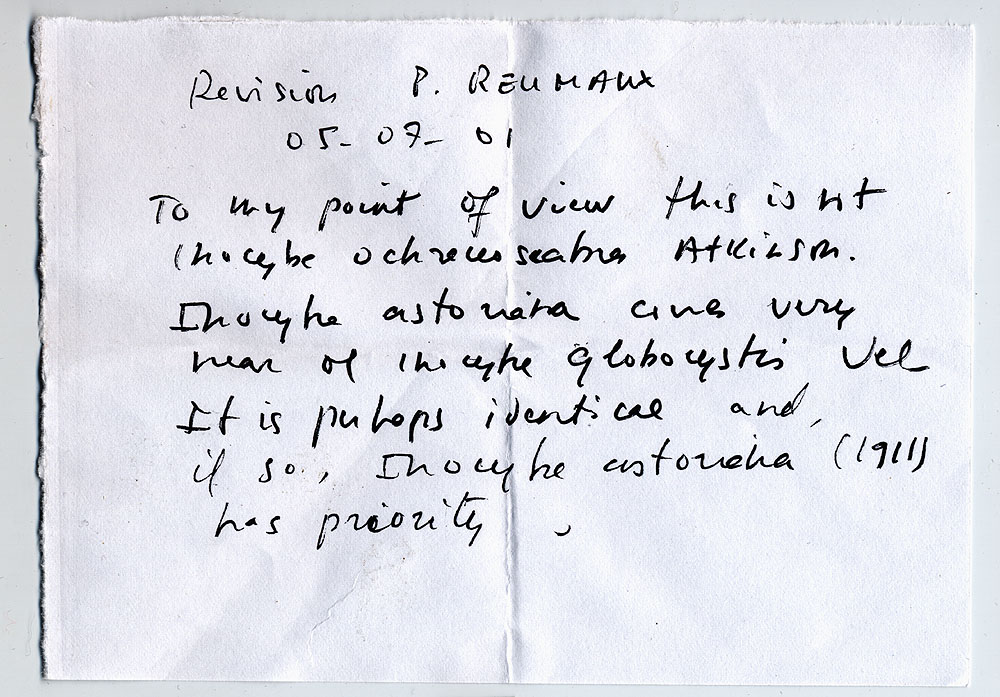 Revision P. REUMAUX
05-07-01
To my point of view this is not
Inocybe ochraceoscabra Atkinson.
Inocybe astoriana comes very
near of Inocybe globocystis Vel
It is perhaps identical and,
if so, Inocybe astoriana (1911)
has priority.